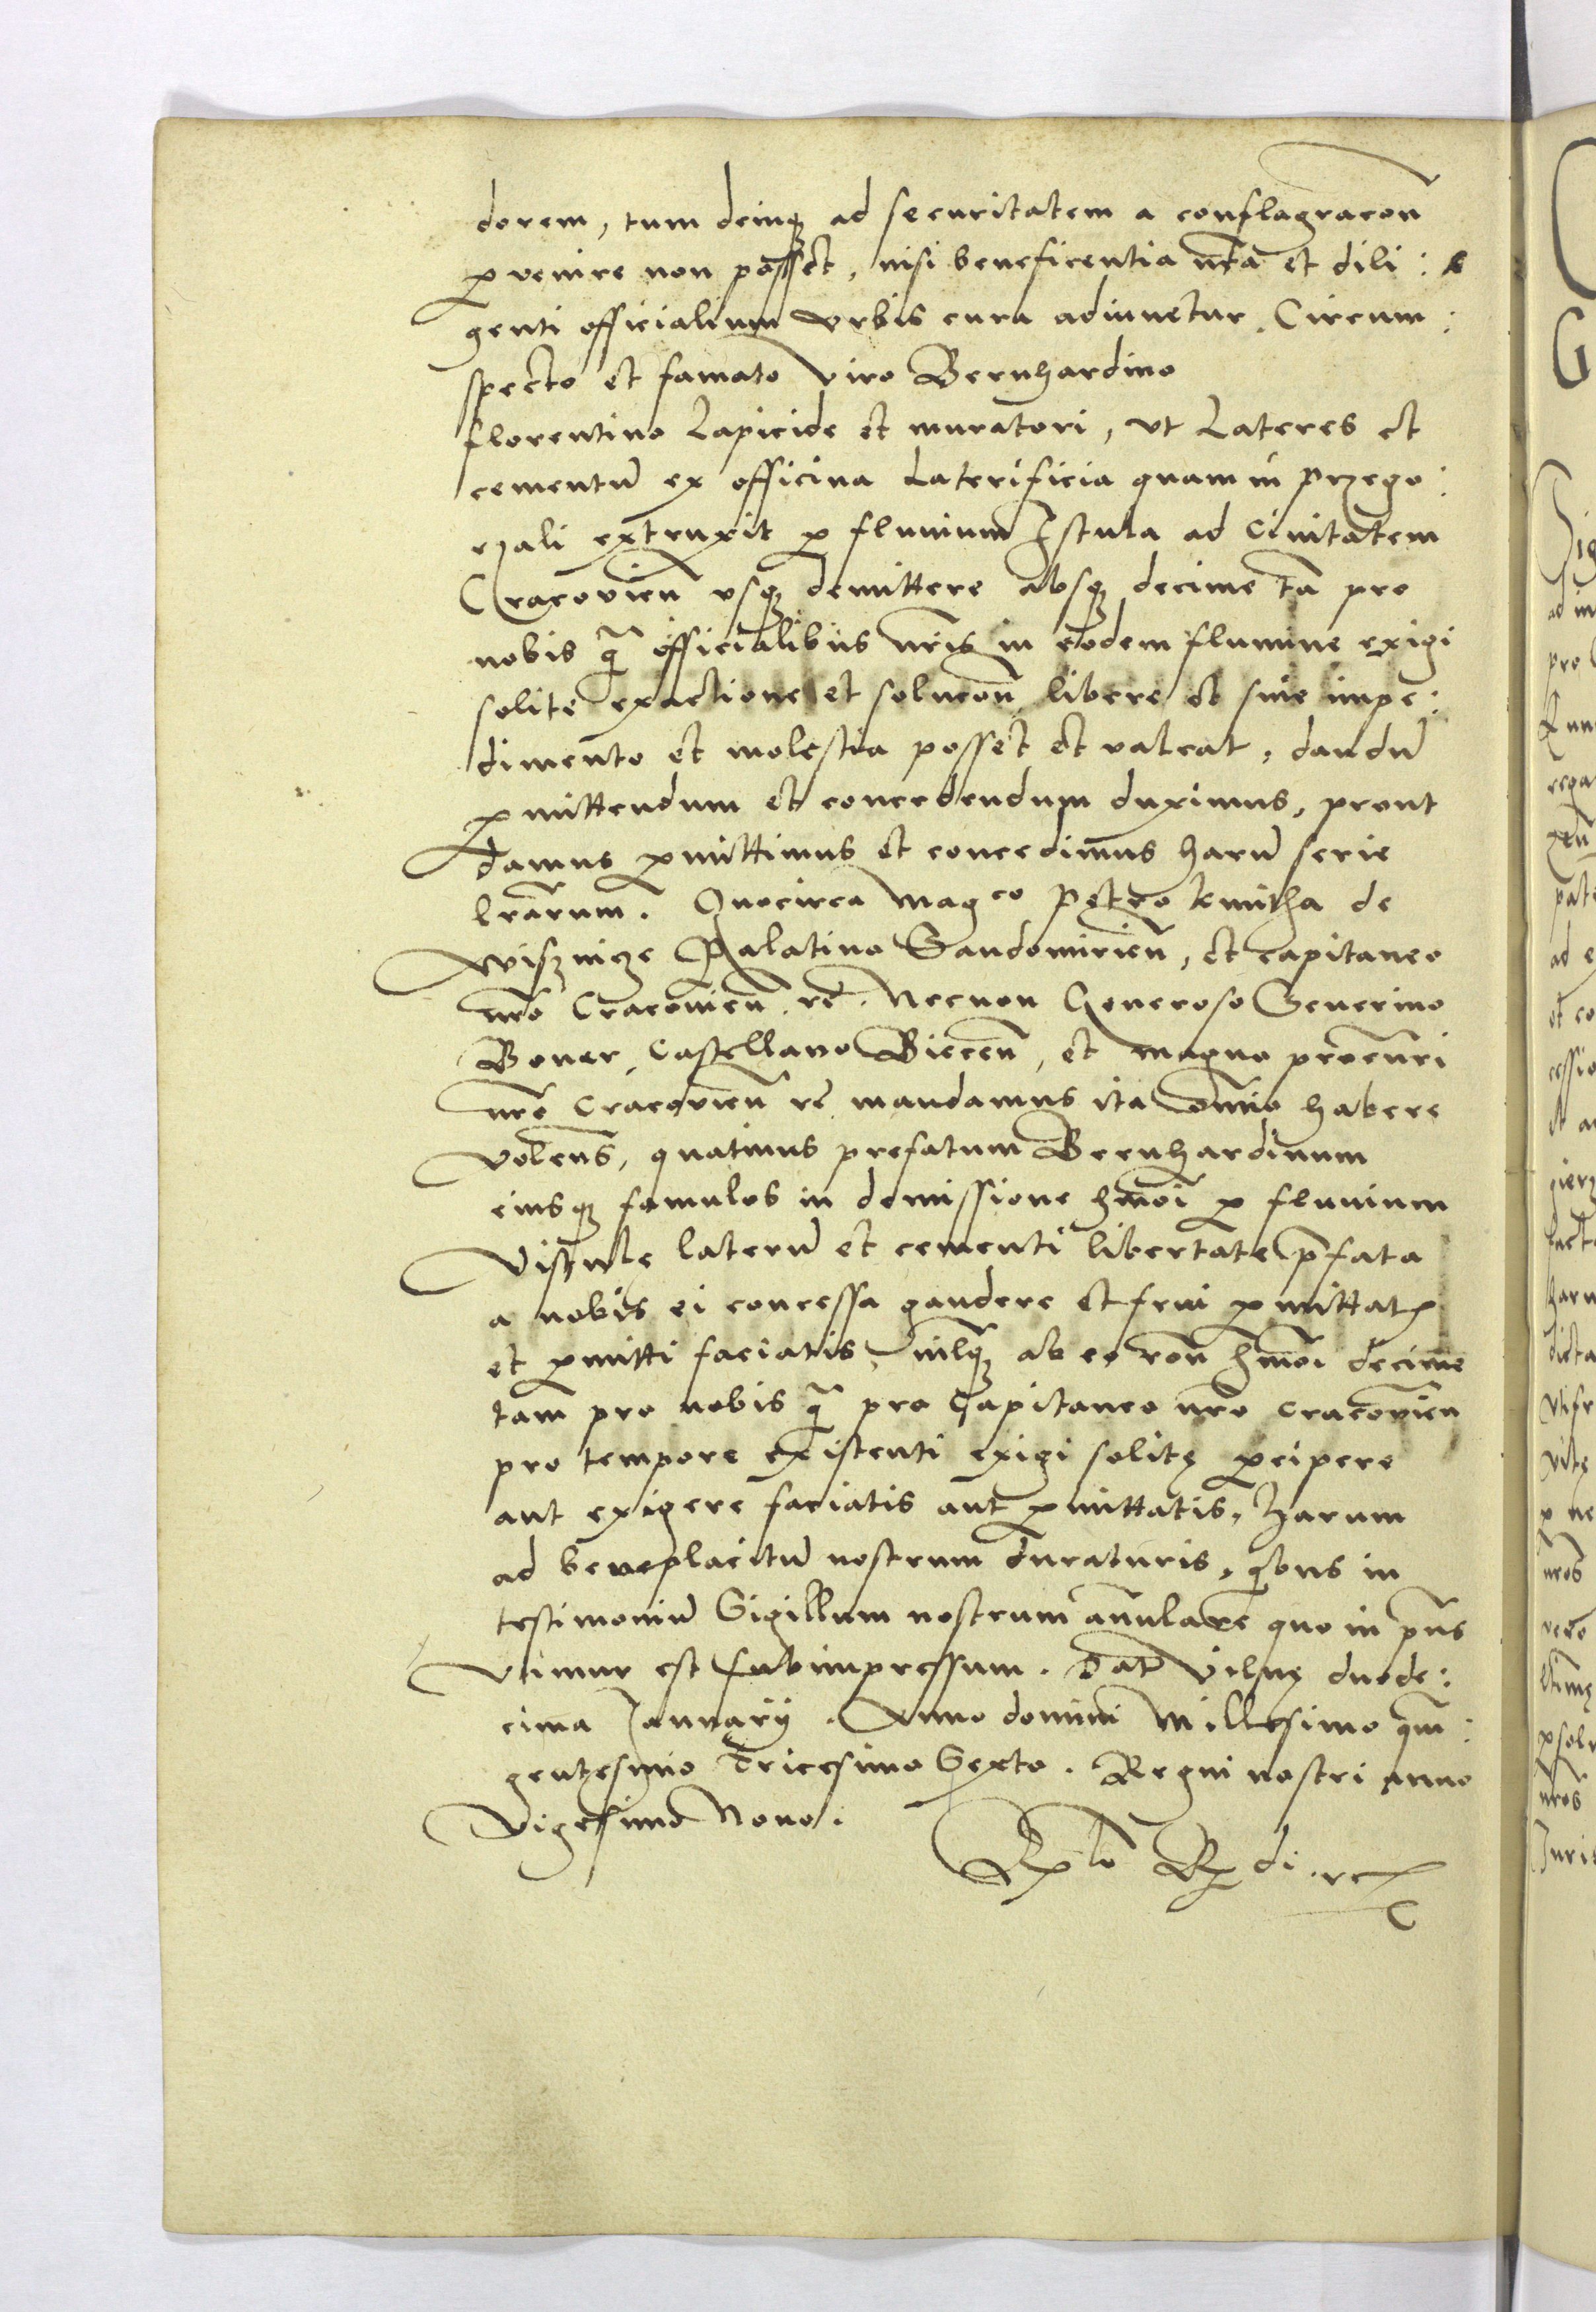 dorem, tum deinq̨ ad securitatem a conflagracōn
ꝑvenire non possset, nisi beneficentia nr̄a et dili:
genti officialium vrbis cura adiuuetur. Circum:
specto et famato viro Bernhardino
florentino Lapicide et muratori, vt Lateres et
cementū ex officina Laterificia quam in Przego:
rzali extruxit ꝑ fluuium Istula ad Ciuitatem
Cracovien̄ vsq̨ demittere absq̨ decime tā pro
nobis q̄ officialibus nr̄is in eodem flumine exigi
solite exactione et solucōn libere et sine impe:
dimento et molestia posset et valeat, dandū
ꝑmittendum et concedendum duximus, prout
damus ꝑmittimus et concedimus harū serie
lr̄arum. Quocirca Mag^co Petro kmitha de
Wisznicze Palatino Sandomirien̄, et capitaneo
nr̄o Cracouien̄. rc̄. Necnon Generoso Seuerino
Boner, Castellano Biecen̄, et magno procur̄i
nr̄o Cracovien̄ rc̄ mandamus ita om̄io habere
volens̄, quatinus prefatum Bernhardinum
eiusq̨ famulos in demissione hm̄oi ꝑ fluuium
Vistule laterū et cementi libertate p̄fata
a nobis ei concessa gaudere et frui ꝑmittatꝭ
et ꝑmitti faciatis, nilq̨ ab eo rōn hm̄oi decime
tam pro nobis q̄ pro Capitaneo nr̄o Cracovien̄
pro tempore existenti exigi solitę ꝑcipere
aut exigere faciatis aut ꝑmittatis, harum
ad beneplacitū nostrum duraturis, q̄bus in
testimoniū Sigillum nostrum an̄ulare quo in pn̄s
vtimur est subimpressum. Dat̄ Vilnę duode:
cima Ianuarij. Anno domini Millesimo quī:
gentesimo Tricesimo Sexto. Regni nostri anno
Vigesimo Nono.